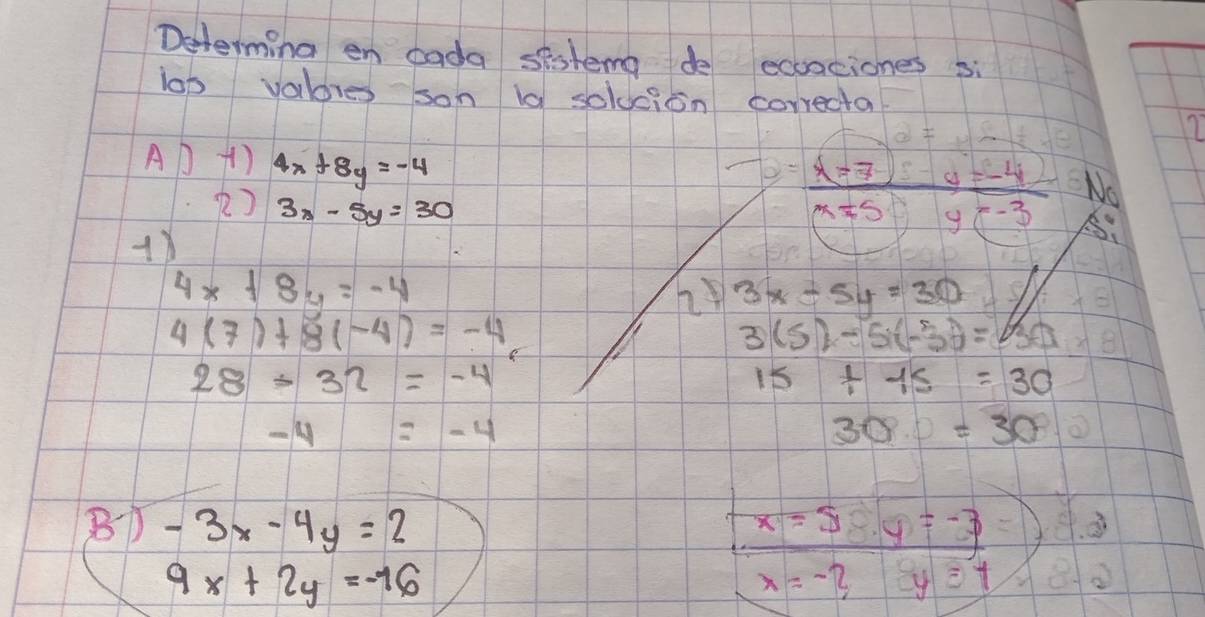 Determina en cada sistema de ecuaciones si
los valores son la solución correcta.
A) 1) 4x + 8y = -4
2) 3x - 5y = 30
x = 7 y = -4 No
x = 5 y = -3 Si
1)
4x + 8y = -4
4(7) + 8(-4) = -4
28 - 32 = -4
-4 = -4
2) 3x - 5y = 30
3(5) - 5(-3) = 30
15 + 15 = 30
30 = 30
B) -3x - 4y = 2
9x + 2y = -16
x = 5 y = -3
x = -2 y = 1